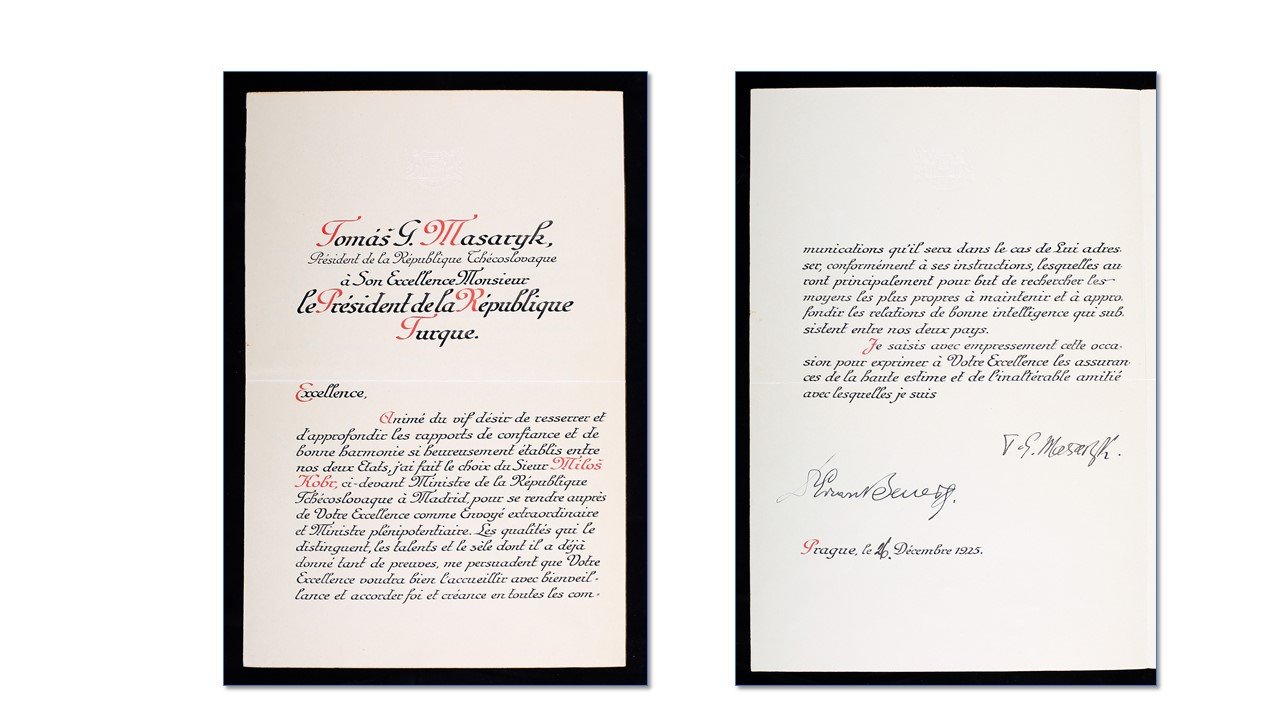 Tomáš G. Masaryk,
Président de la République Tchécoslovaque
à Son Excellence Monsieur
le Président de la République
Turque.
Excellence,
Animé du vif désir de resserrer et
d'approfondir les rapports de confiance et de
bonne harmonie si heureusement établis entre
nos deux Etats, j'ai fait le choix du Sieur Miloš
Kobr, ci-devant Ministre de la République
Tchécoslovaque à Madrid, pour se rendre auprès
de Votre Excellence comme Envoyé extraordinaire
et Ministre plénipotentiaire. Les qualités qui le
distinguent, les talents et le zèle dont il a déjà
donné tant de preuves, me persuadent que Votre
Excellence voudra bien l'accueillir avec bienveil-
lance et accorder foi et créance en toutes les com-
munications qu'il sera dans le cas de Lui adres-
ser, conformément à ses instructions, lesquelles au-
ront principalement pour but de rechercher les
moyens les plus propres à maintenir et à appro-
fondir les relations de bonne intelligence qui sub-
sistent entre nos deux pays.
Je saisis avec empressement cette occa-
sion pour exprimer à Votre Excellence les assuran-
ces de la haute estime et de l'inaltérable amitié
avec lesquelles je suis
T. G. Masaryk.
Prague, le Décembre 1925.